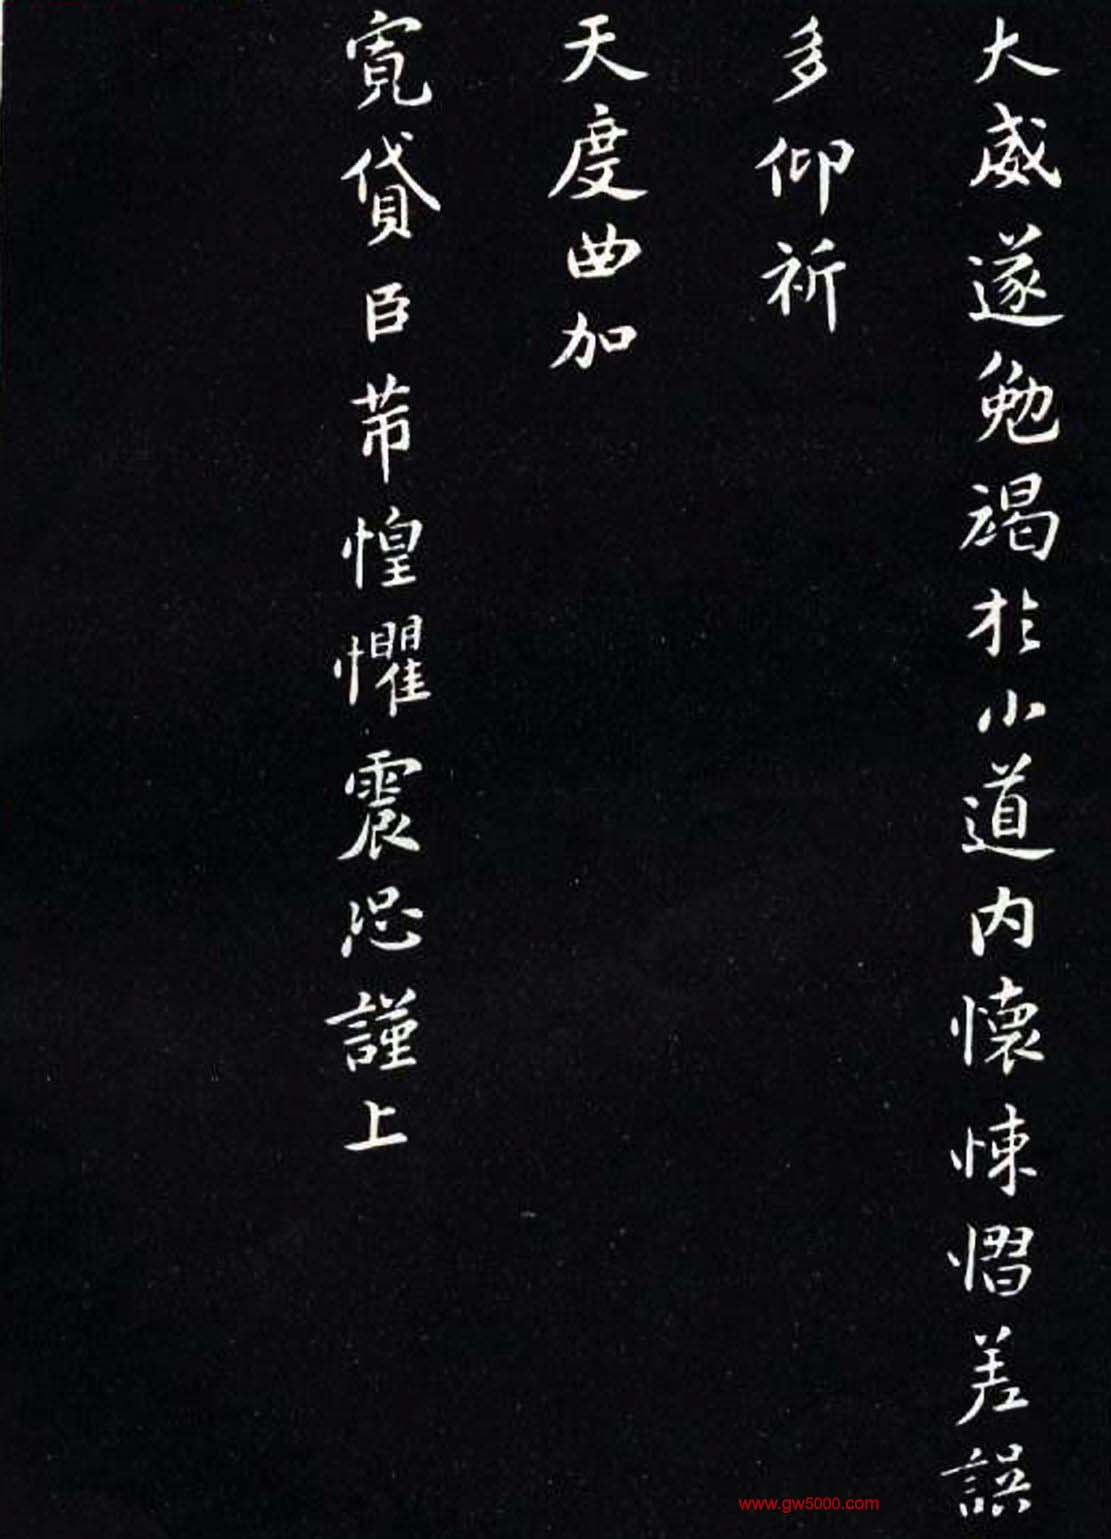 大威遂勉竭於小道内懷悚慴差誤
多仰祈
天度曲加
寬貸臣芾惶懼震恐謹上
www.gw5000.com